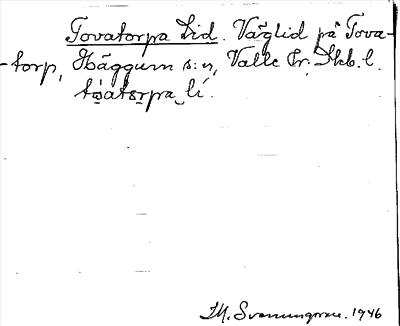 Tovatorpa Lid. Väglid på Tova-
-torp, Häggum s:n, Valle hr. Skb. l.
tòatorpa li.
M. Svanungsson. 1946